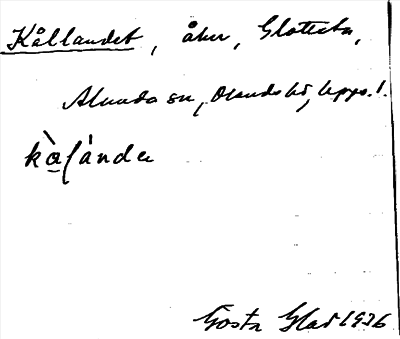 Kållandet, åker, Glatista,
Alunda sn, Olands hd, Upps. l.
kålánda
Gösta Glad 1926